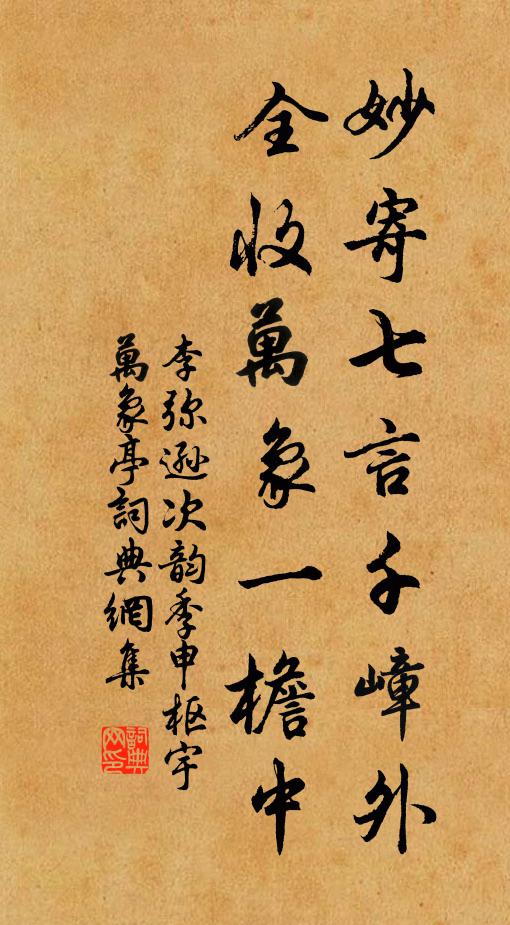 妙寄七言千嶂外
全收萬象一檐中
李弥遜次韵季申枢宇
萬象亭詞典網集
詞典网印